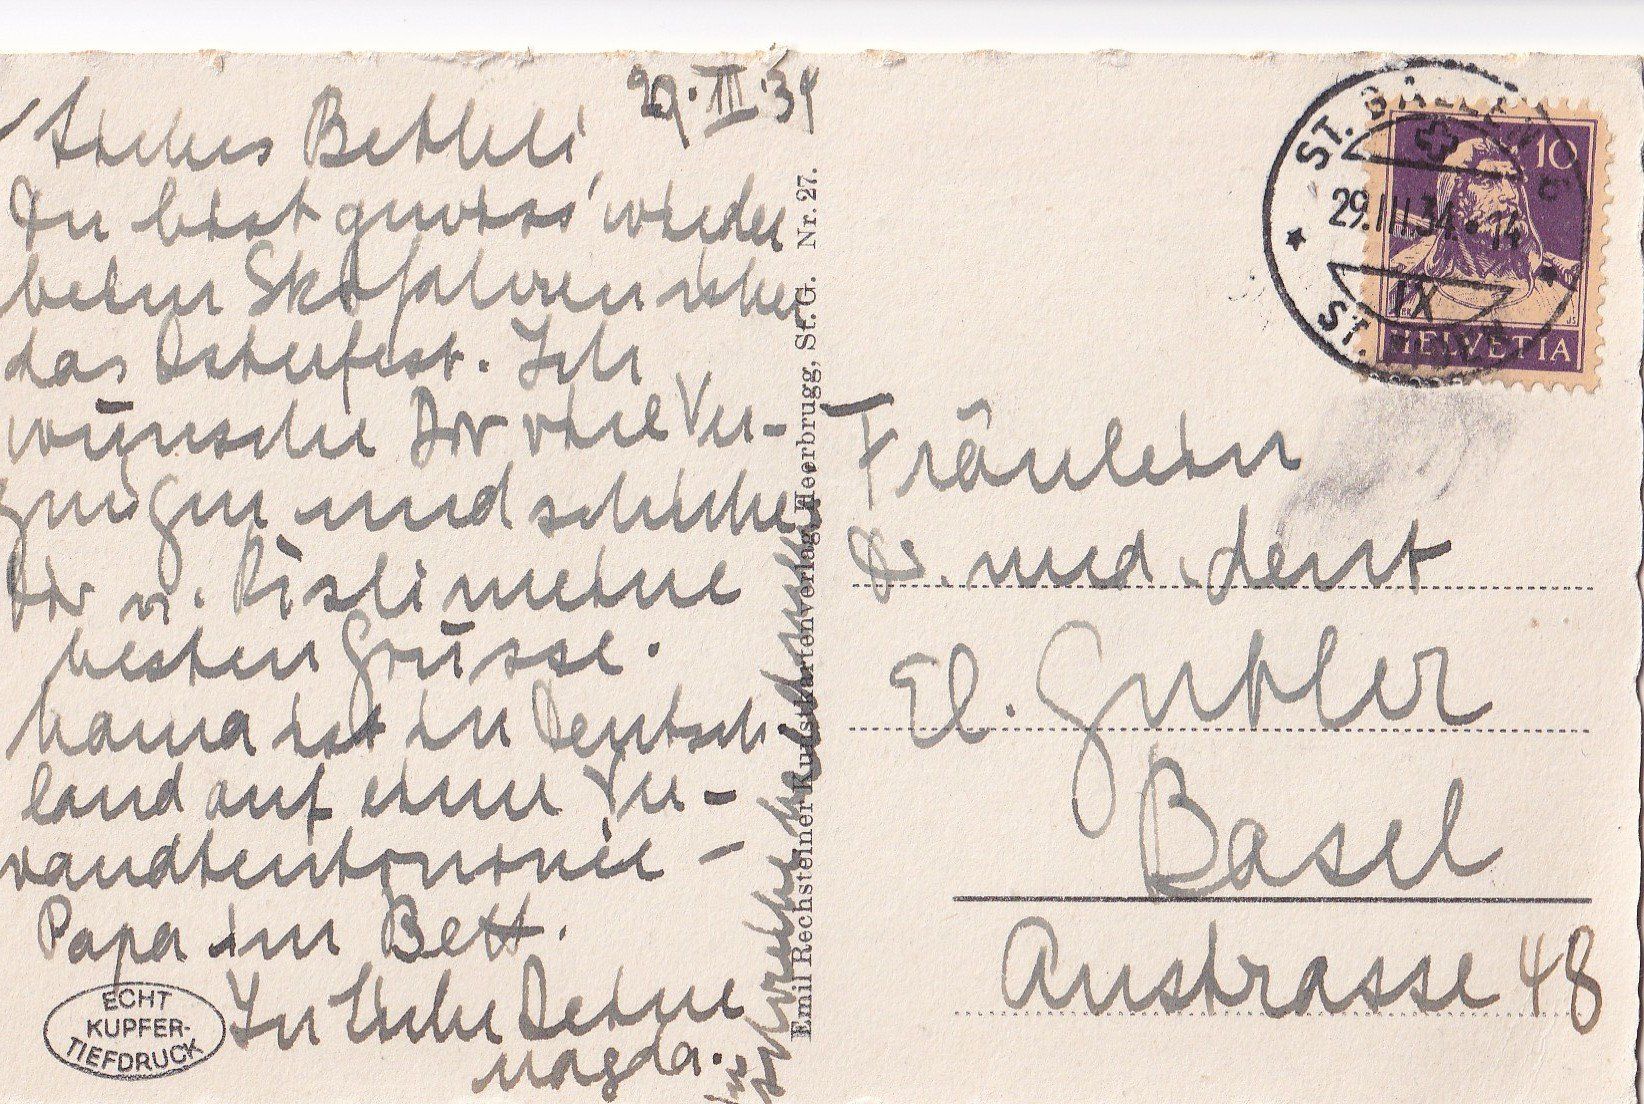 29. III 34
Liebes Bethli
Du bist gewiss wieder
beim Skifahren über
das Osterfest. Ich
wünsche Dir viel Ver-
gnügen und schicke
Dir u. Rösli meine
besten Grüsse.
Mama ist in Deutsch
land auf einer Ver-
wandtentournée –
Papa im Bett.
In Liebe Deine
Magda.
ECHT
KUPFER-
TIEFDRUCK
Emil Rechsteiner Kunstkartenverlag, Heerbrugg, St. G. Nr. 27.
ST. GALLEN
29.III.34.-14
IX
ST. GALLEN
10
HELVETIA
Fräulein
Dr. med. dent
El. Gubler
Basel
Austrasse 48